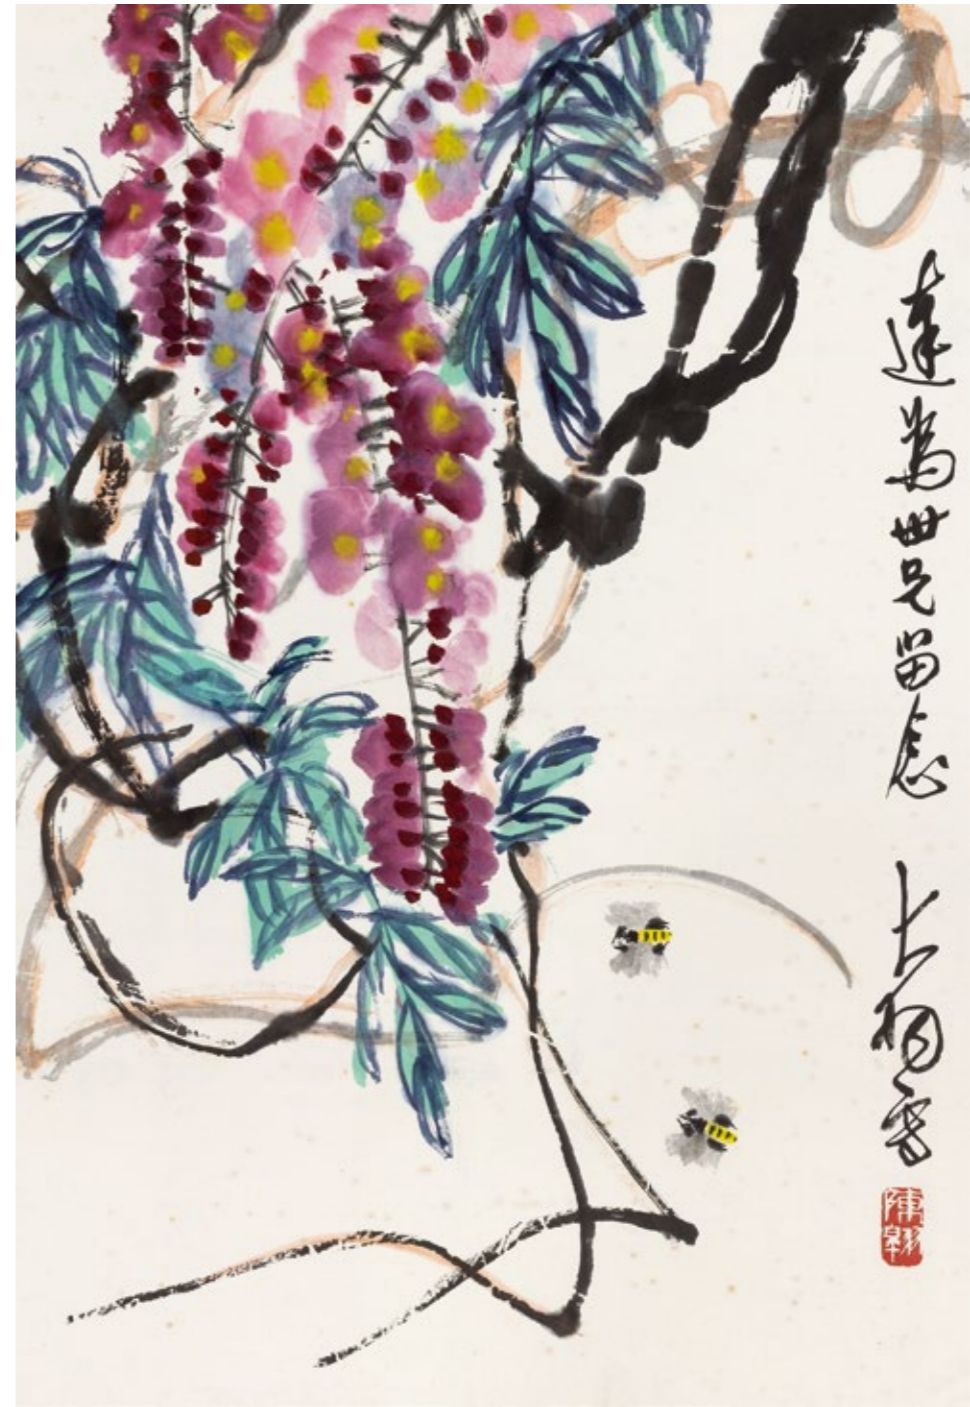 達為世兄留念 大羽
陳翱